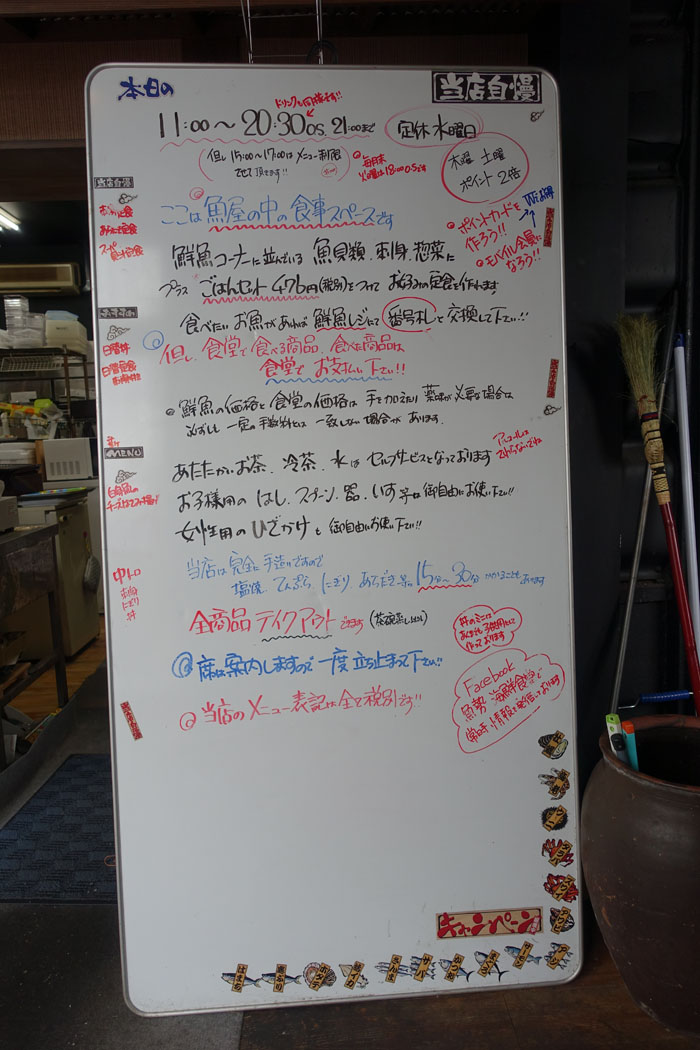 本日の
当店自慢
ドリンクも同様です!!
11:00〜20:30 OS. 21:00まで
定休 水曜日
(但し 15:00〜17:00は メニュー制限
させて頂きます)
毎月末
火曜は18:00 O.Sです
木曜 土曜
ポイント2倍
ポイントカードを
作ろう!!
モバイル会員に
なろう!!
ここは 魚屋の中の食事スペースです
鮮魚コーナーに並んでいる 魚貝類、刺身、惣菜に
プラス ごはんセット 476円(税別)をつけて お好みの定食を作れます
食べたい お魚があれば 鮮魚レジにて 番号札と交換して下さい!!
但し、食堂で食べる商品、食べた商品は
食堂で お支払い下さい!!
鮮魚の価格と食堂の価格は 手を加えたり 薬味が必要な場合は
必ずしも 一定の手数料とは 一致しない場合が あります.
あたたかいお茶、冷茶、水は セルフサービスとなっております
お子様用の はし、スプーン、器、いす 等は 御自由にお使い下さい!!
女性用の ひざかけも 御自由にお使い下さい!!
当店は 完全に手造りですので
塩焼、てんぷら、にぎり、あらだき 等は 15分〜30分 かかることもあります
全商品 テイクアウト できます (茶碗蒸し以外)
席は案内しますので 一度立ち止まって下さい!!
当店のメニュー表記は全て税別です!!
Facebook
魚勢 海鮮食堂で
常時 情報を発信しております
当店自慢
日替丼
日替定食
MENU
白身魚の
中トロ
刺身
にぎり
丼
キャンペーン